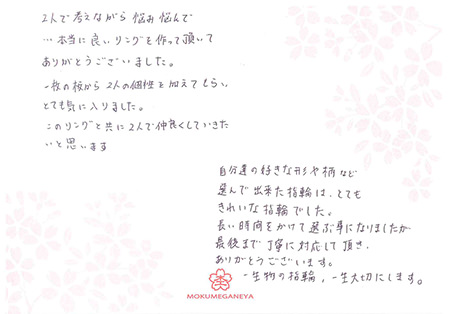 2人で考えながら 悩み悩んで
…本当に良いリングを作って頂いて
ありがとうございました。
一枚の板から 2人の個性を加えてもらい、
とても気に入りました。
このリングと共に2人で仲良くしていきた
いと思います
自分達の好きな形や柄など
選んで出来た指輪は、とても
きれいな指輪でした。
長い時間をかけて選ぶ事になりましたが
最後まで丁寧に対応して頂き、
ありがとうございます。
一生物の指輪、一生大切にします。
MOKUMEGANEYA